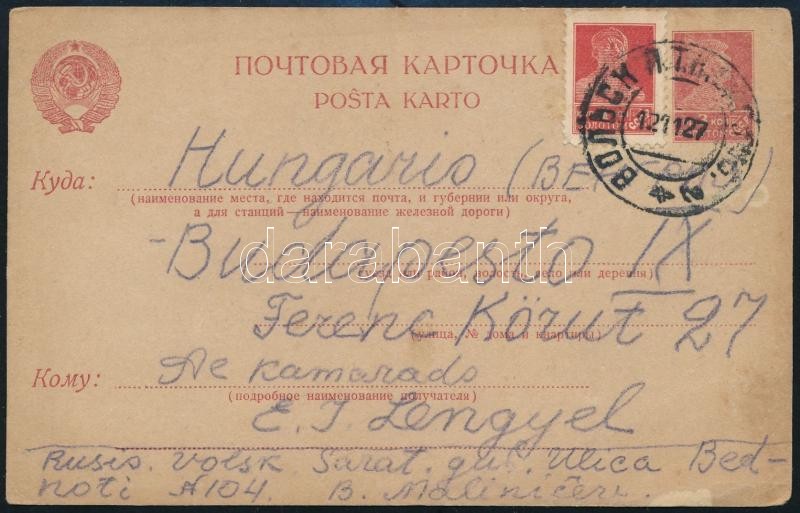 ПОЧТОВАЯ КАРТОЧКА
POŜTA KARTO
ЗОЛОТОМ
ВОЛЬСК
12 11 27
Куда: Hungario
(наименование места, где находится почта, и губернии или округа,
а для станций—наименование железной дороги)
Budapesto IX
(уезд или район, волость, село или деревня)
Ferenc Körut 27
(улица, № дома и квартиры)
Кому: Al kamarado
(подробное наименование получателя)
E. J. Lengyel
Rusio. Volsk Sarat. gub. Ulica Bed-
noti N 104. B. Maliničev.
darabanth